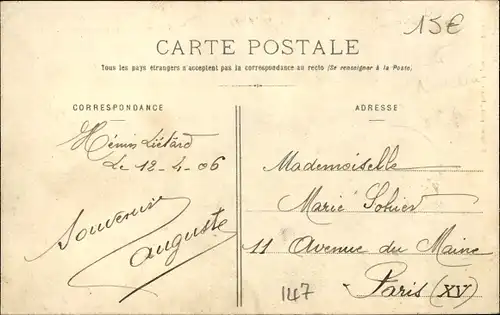 15€
CARTE POSTALE
Tous les pays étrangers n'acceptent pas la correspondance au recto (Se renseigner à la Poste).
CORRESPONDANCE
ADRESSE
Hénin Liétard
Le 12-4-06
Souvenir
Auguste
Mademoiselle
Marie Sohier
11 Avenue du Maine
Paris (XV)
147